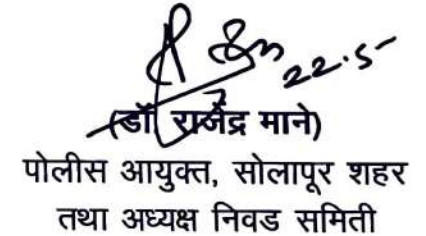 22.5
(डॉ. राजेंद्र माने)
पोलीस आयुक्त, सोलापूर शहर
तथा अध्यक्ष निवड समिती